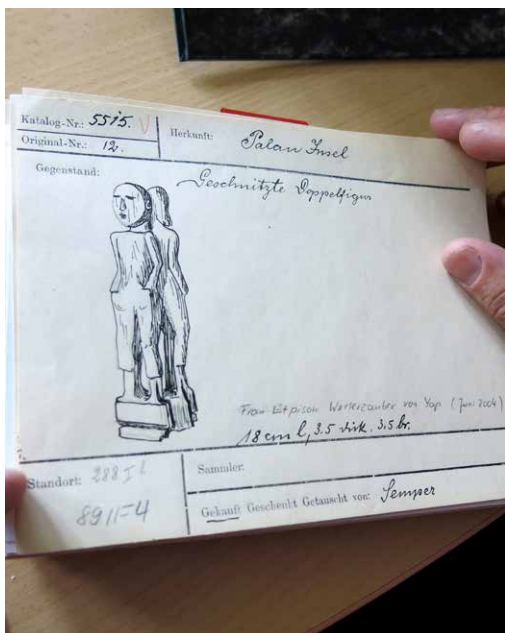 Katalog-Nr.: 5515. V
Herkunft: Palau Insel
Original-Nr.: 12.
Gegenstand:
Geschnitzte Doppelfigur
Wetterzauber von Yap (Juni 2004)
18 cm l, 3.5 dick. 3.5 br.
Standort: 288 I l
8911=4
Sammler:
Gekauft Geschenkt Getauscht von: Semper